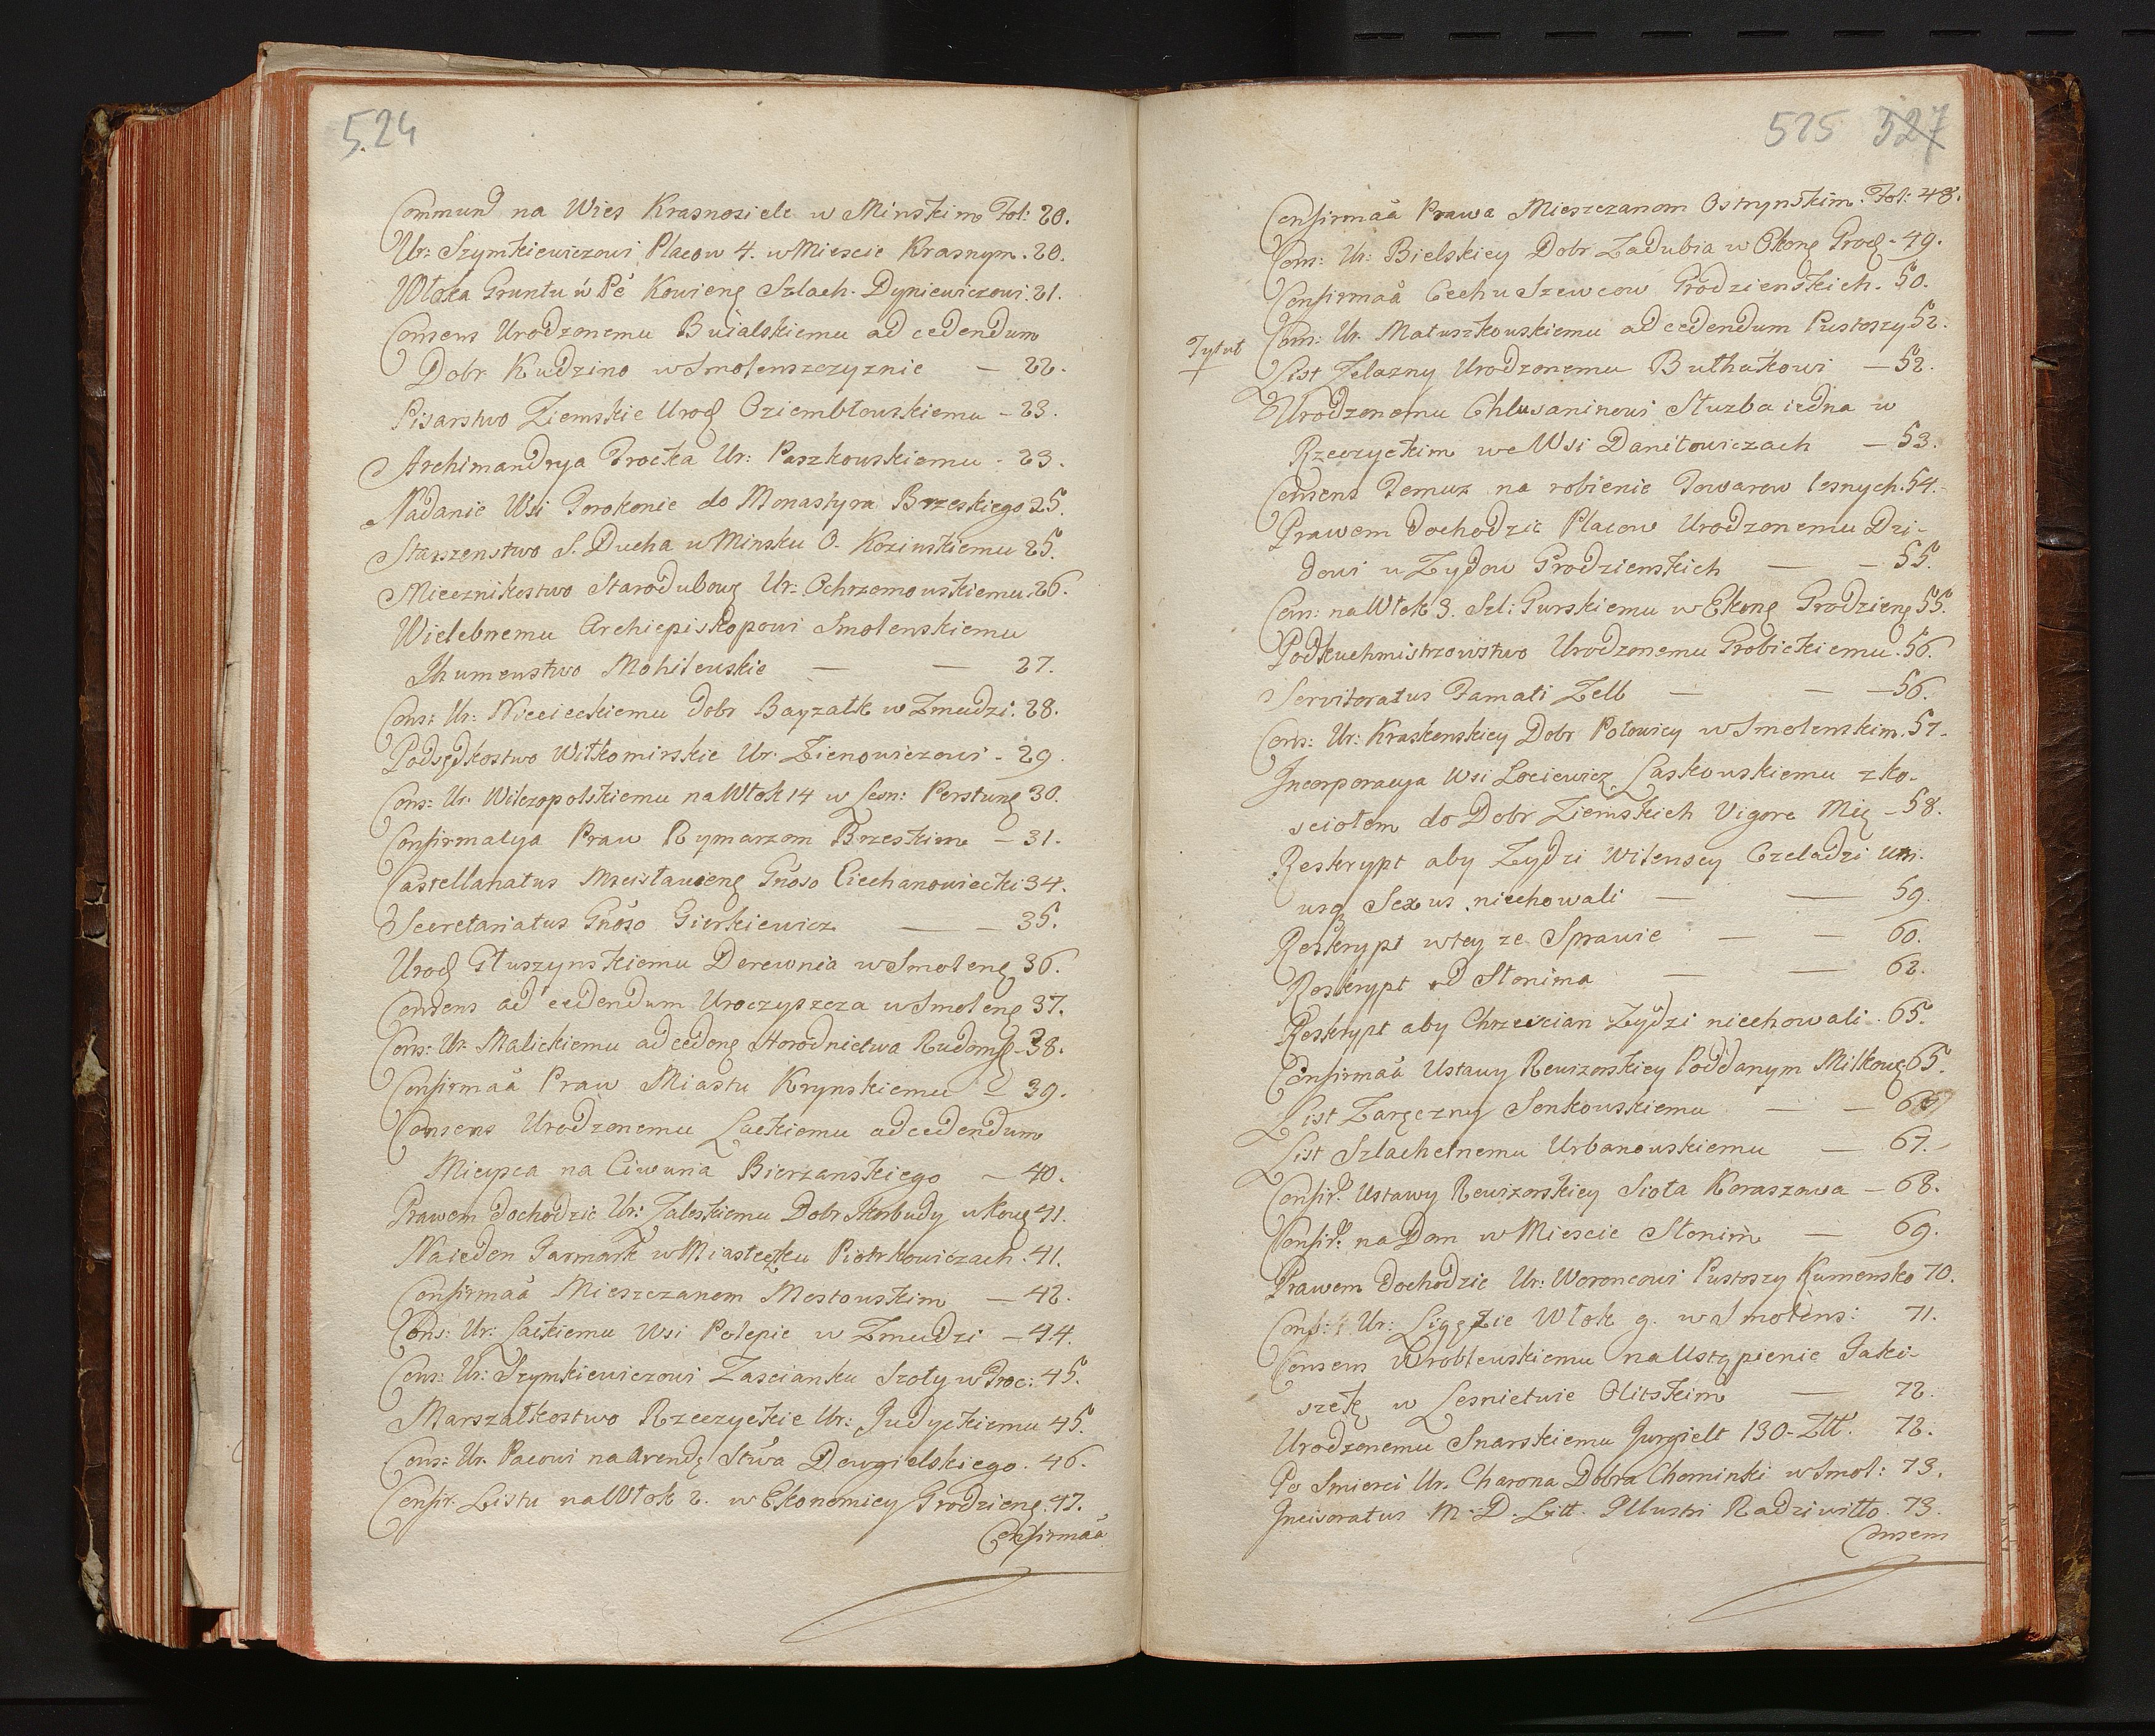 524
Commund na Wies Krasnosiele w Minskim Fol: 20.
Ur: Szymkiewiczowi Placow 4. w Miescie Krasnym. 20.
Włoka Gruntu w Pẻ Kowieng Szlach. Dyniewiczowi. 21.
Consens Urodzonemu Buialskiemu ad cedendum
Dobr Kudzino w Smolenszczyznie — 22.
Pisarstwo Ziemskie Urod Oziembłowskiemu - 23.
Archimandrya Trocka Ur: Paszkowskiemu - 23.
Nadanie Wsi Torokonie do Monastyra Brzeskiego 25.
Starszenstwo S. Ducha w Minsku O. Kozinskiemu 25.
Miecznikostwo Starodubowg Ur: Ochrzemowskiemu. 26.
Wielebnemu Archiepiskopowi Smolenskiemu
Ihumenstwo Mohilewskie — — 27.
Cons: Ur: Niecieckiemu Dobr Bayzatk w Zmudzi. 28.
Podsędkostwo Wiłkomirskie Ur. Zienowiczowi - 29.
Cons: Ur. Wilczopolskiemu na Włok 14 w Lesn: Perstung 30.
Confirmacya Praw Rymarzom Brzeskim — 31.
Castellanatus Mscisławieng Gnoso Ciechanowiecki 34.
Secretariatus Gnoso Gierkiewicz — — 35.
Urod Głuszynskiemu Derewnia w Smoleng 36.
Consens ad cedendum Uroczyszcza w Smoleng 37.
Cons: Ur. Malickiemu ad cedeng Horodnictwa Rudoms - 38.
Confirmaa Praw Miastu Krynskiemu — 39.
Consens Urodzonemu Łackiemu ad cedendum
Mieysca na Ciwuna Bierzanskiego — 40.
Prawem dochodzic Ur: Zaleskiemu Dobr Skorbudy w Kowg 41.
Na ieden Jarmark w Miasteczku Piotrkowiczach. 41.
Confirmaa Mieszczanom Mostowskim — 42.
Cons: Ur: Łackiemu Wsi Polepie w Zmudzi — 44.
Cons: Ur: Szymkiewiczowi Zascianku Szoty w Troc: 45.
Marszałkostwo Rzeczyckie Ur: Judyckiemu 45.
Cons: Ur. Pacowi na Arendę Stwa Dowgielskiego. 46.
Confir. Listu na Włok 2. w Ekonomiey Grodzieng. 47.
Confirmaa
525 527
Confirmaa Prawa Mieszczanom Ostrynskim. Fol: 48.
Cons: Ur: Bielskiey Dobr Zadubia w Ekong Grod - 49.
Confirmaa Cechu Szewcow Grodzienskich. 50.
Cons: Ur. Matuszkowskiemu ad cedendum Pustoszy 52.
Tytuł
List Zelazny Urodzonemu Bułhakowi — 52.
Urodzonemu Chlusaninowi Słuzba iedna w
Rzeczyckim we Wsi Daniłowiczach — 53.
Consens Temuz na robienie Towarow lesnych. 54.
Prawem dochodzic Placow Urodzonemu Dzi-
dowi u Zydow Grodzienskich — — 55.
Con: na Włok 3. Szl: Gurskiemu w Ekong Grodzieng 55.
Podkuchmistrzowstwo Urodzonemu Grobickiemu. 56.
Servitoratus Famati Zell — — — 56.
Cons: Ur: Kraskowskiey Dobr Połowicy w Smolenskim. 57.
Incorporacya Wsi Lociewicz Laskowskiemu z ko-
sciołem do Dobr Ziemskich Vigore Mię - 58.
Reskrypt aby Zydzi Wilenscy Czeladzi utri-
usq Sexus niechowali — — 59.
Reskrypt w tey ze Sprawie — — 60.
Reskrypt od Słonima — — 62.
Reskrypt aby Chrzescian Zydzi niechowali. 65.
Confirmaa Ustawy Rewizorskiey Poddanym Milkowg 65.
List Zaręczny Senkowskiemu — — 66
List Szlachetnemu Urbanowskiemu — 67.
Confir. Ustawy Rewizorskiey Sioła Koraszowa — 68.
Confir. na Dom w Miescie Słonim — 69.
Prawem dochodzic Ur: Woroncowi Pustoszy Kumensko 70.
Cons: Ur: Ligęzie Włok 9. w Smolens: 71.
Consens Wroblewskiemu na Ustąpienie Jaki-
szek w Lesnictwie Olitskim — 72.
Urodzonemu Snarskiemu Jurgielt 130 - Złł. 72.
Po Smierci Ur. Charona Dobra Chominki w Smol: 73.
Incisoratus M. D. Litt. Illustri Radziwiłło. 73.
Consens